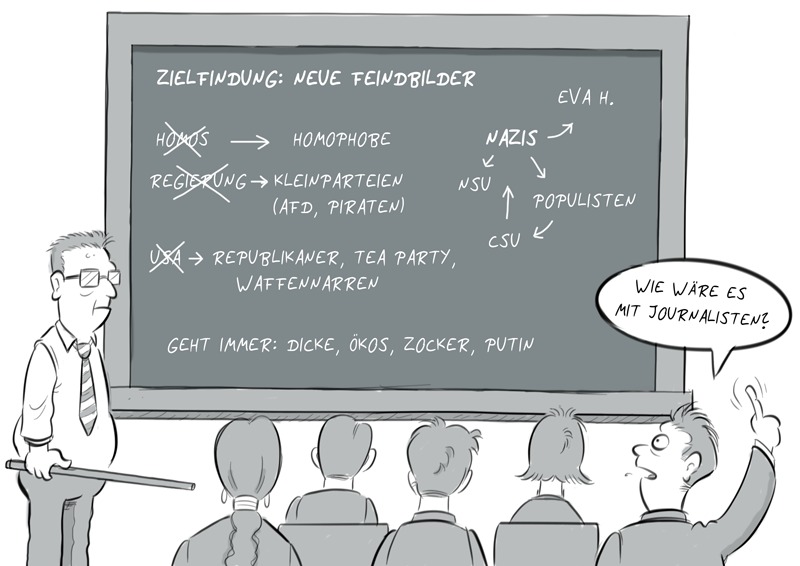 ZIELFINDUNG: NEUE FEINDBILDER
EVA H.
HOMOS → HOMOPHOBE
NAZIS
REGIERUNG → KLEINPARTEIEN
(AFD, PIRATEN)
NSU
POPULISTEN
CSU
USA → REPUBLIKANER, TEA PARTY,
WAFFENNARREN
GEHT IMMER: DICKE, ÖKOS, ZOCKER, PUTIN
WIE WÄRE ES
MIT JOURNALISTEN?